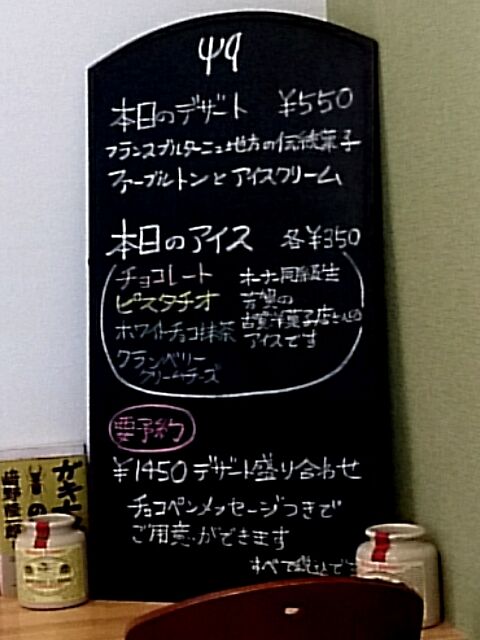 本日のデザート ¥550
フランスブルターニュ地方の伝統菓子
ファーブルトンとアイスクリーム
本日のアイス 各¥350
チョコレート
ピスタチオ
ホワイトチョコ抹茶
クランベリー
クリームチーズ
オーナー同級生
古賀洋菓子店さんの
アイスです
要予約
¥1450 デザート盛り合わせ
チョコペンメッセージつきで
ご用意ができます
すべて税込です